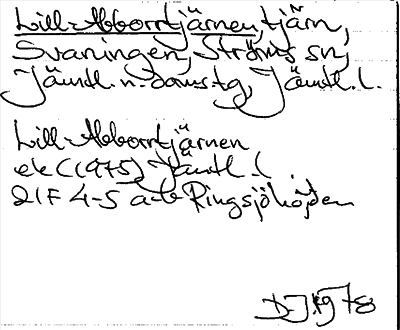 Lill-Abborrtjärnen, tjärn,
Svaningen, Ströms sn,
Jämtl. n. doms.tg, Jämtl. l.
Lill-Abborrtjärnen
ek (1975) Jämtl. l.
21F 4-5 a-b Ringsjöhöjden
D-J. 1978